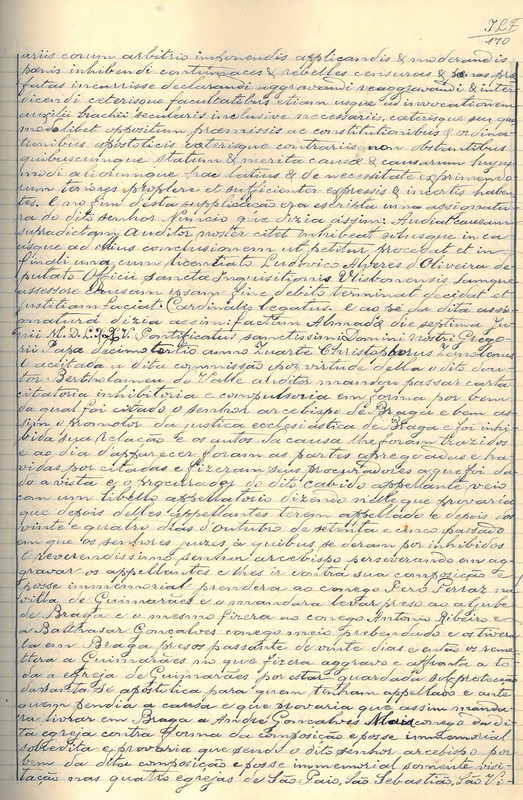 J L F
170
ariis eorum arbitrio imponendis applicandis & moderandis
pœnis inhibendi contumaces & rebelles censuras & pœnas præ
fatas incurrisse declarandi aggravandi reaggravandi & inter
dicendi cæterisque facultatibus etiam usque ad invocationem
auxilii brachii secularis inclusive necessariis, cæterisque seu quo
modolibet oppositum præmissis ac constitutionibus & ordina
tionibus apostolicis cæterisque contrariis non obstantibus
quibuscumque statum & merita causæ & causarum hujus
modi aliorumque hac latius & de necessitate exprimendo
rum tenores pro plene et sufficienter expressis & insertis haben
tes. E no fim d'esta supplicação era escripta uma assignatu
ra do dito senhor Nuncio que dizia assim: Audiat causam
supradictam Auditor noster citet inhibeat usque in ca
usque ad ejus conclusionem ut petitur procedat et in
finali una cum licentiato Ludovico Alveres d'Oliveira de
putato Officii Sanctæ Inquisitionis Ulisbonensis tamque
assessore causam ipsam fine debito terminat decidat et
justitiam faciat Cardinalis legatus. E ao pé da dita assi
gnatura dizia assim: facit in Almada & die septima Ju
nii M. D. L. Pontificatus sanctissimi Domini Nostri Grego
rii Papa decimo tertio anno Quarto Christophorus
E aceitada a dita commissão por virtude della o dito dou
tor Bertholameu do Valle auditor mandou passar carta
citatoria inhibitoria e compulsoria em forma por bem
da qual foi citado o senhor arcebispo de Braga e bem as-
sim o promotor da justiça ecclesiastica de Braga e foi inhi-
bida sua Relação e os autos da causa lhe foram trazidos
e ao dia d'apparecer foram as partes apregoadas e ha
vidas por citadas e fizeram seus procuradores a que foi da
do a vista e o procurador do dito cabido appellante veio
com um libello appellatorio dizendo n'elle que provaria
que depois delles appellantes terem appellado e depois dos
vinte e quatro dias d'outubro de setenta e cinco passado
em que os senhores juizes à quibus se deram por inhibidos
O reverendissimo senhor arcebispo perseverando em ag-
gravar os appellantes e lhes ir contra sua composição e
posse immemorial prendera ao conego Pero Ferraz na
villa de Guimarães e o mandara levar preso ao aljube
de Braga e o mesmo fizera ao conego Antonio Ribeiro e
a Balthasar Gonçalves conego meio prebendado e os tivera
la em Braga presos passante de vinte dias e então os reme
ttera a Guimarães no que fizera aggravo e affronta a to
da a egreja de Guimarães por estar guardada sub protecção
da Santa Sé apostolica para quem tinham appellado e ante
quem pendia a causa e que provaria que assim manda
ra livrar em Braga a André Gonçalves Mais conego da di
ta egreja contra forma da composição e posse immemorial
sobredita e provaria que sendo o dito senhor arcebispo por
bem da dita composição e posse immemorial somente visi-
tação nas quatro egrejas de São Paio, São Sebastião, São Vi-